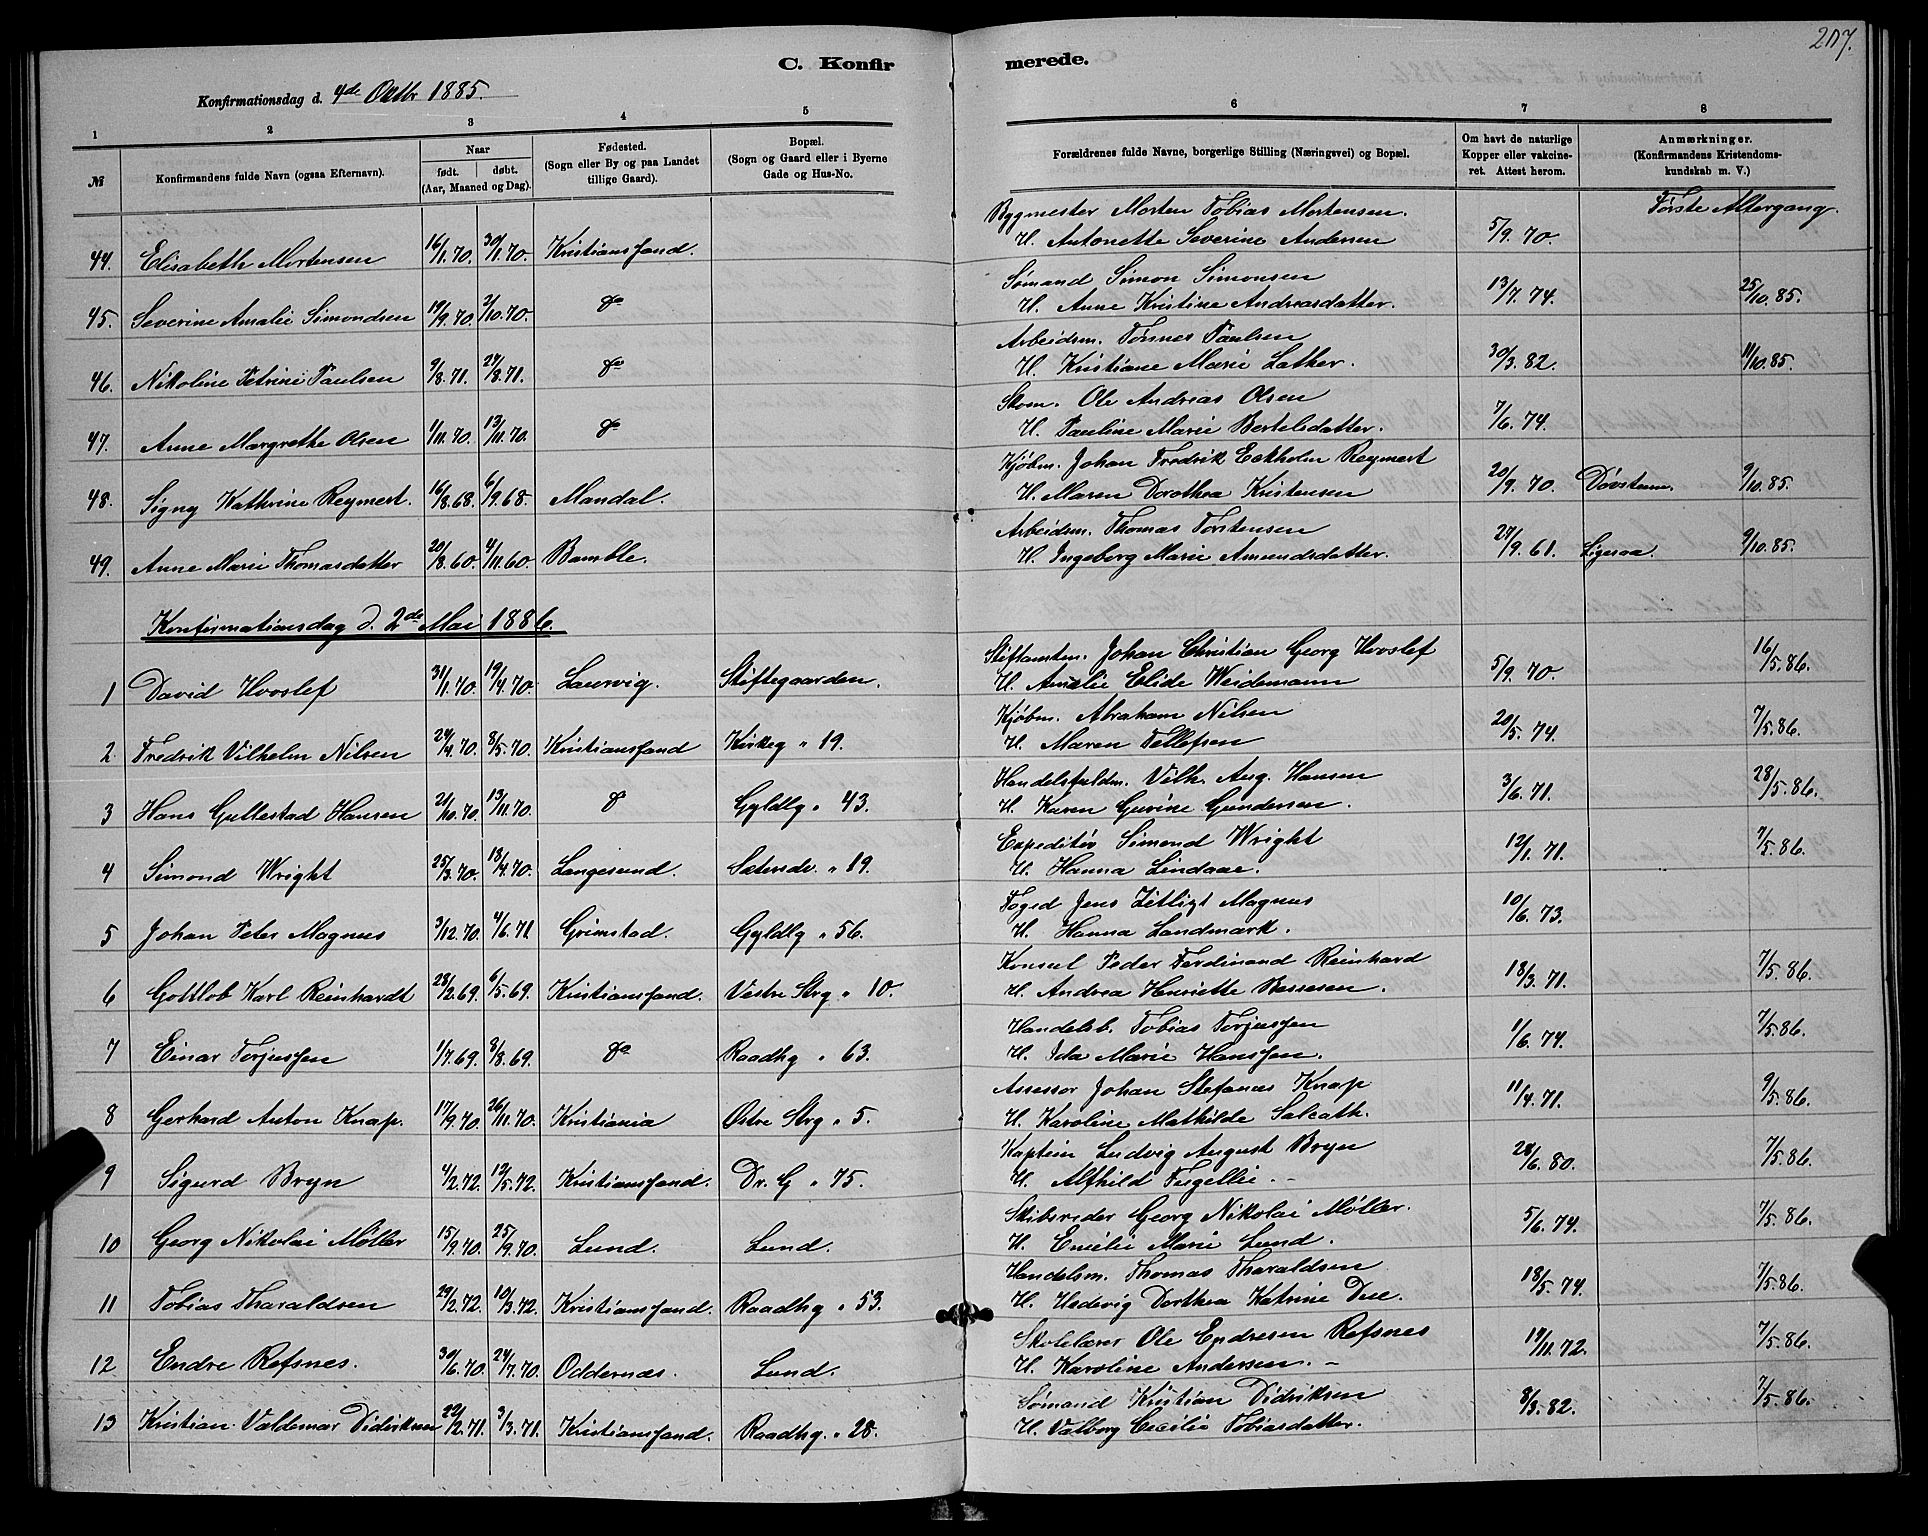 207.
C. Konfirmerede.
Konfirmationsdag d. 4de Oktbr 1885.
1 2 3 4 5 6 7 8
№ Konfirmandens fulde Navn (ogsaa Efternavn). Naar født. døbt. (Aar, Maaned og Dag). Fødested. (Sogn eller By og paa Landet tillige Gaard). Bopæl. (Sogn og Gaard eller i Byerne Gade og Hus-No. Forældrenes fulde Navne, borgerlige Stilling (Næringsvei) og Bopæl. Om havt de naturlige Kopper eller vakcineret. Attest herom. Anmærkninger. (Konfirmandens Kristendomskundskab m. V.)
Første Altergang.
44. Elisabeth Mortensen 16/1.70. 30/1.70. Kristianssand. Bygmester Morten Tobias Mortensen. H. Antonette Severine Andersen 5/9.70.
45. Severine Amalie Simondsen 19/9.70. 2/10.70. do Sømand Simon Simonsen H. Anne Kristine Andreasdatter. 13/7.74. 25/10.85.
46. Nikoline Petrine Paulsen 9/8.71. 27/8.71. do Arbeidsm. Tønnes Paulsen H. Kristiane Marie Lather. 30/3.82. 11/10.85.
47. Anne Margrethe Olsen 1/11.70. 13/11.70. do Skom. Ole Andreas Olsen H. Pauline Marie Bertelsdatter. 7/6.74.
48. Signy Kathrine Reymert. 16/8.68. 6/9.68. Mandal. Kjøbm. Johan Fredrik Eckholm Reymert H. Maren Dorothea Kristensen 20/9.70. Døvstum. 9/10.85.
49. Anne Marie Thomasdatter 20/8.60. 4/11.60. Bamble. Arbeidsm. Thomas Torstensen H. Ingeborg Marie Amundsdatter. 27/9.61. Ligesaa. 9/10.85.
Konfirmationsdag d. 2de Mai 1886.
1 David Hvoslef 31/1.70. 19/4.70. Laurvig. Stiftsgaarden. Stiftamtm. Johan Christian Georg Hvoslef H. Amalie Elide Weidemann 5/9.70. 16/5.86.
2 Fredrik Vilhelm Nilsen 24/4.70. 8/5.70. Kristianssand Kirkeg " 19. Kjøbm. Abraham Nilsen H. Maren Tellefsen 20/5.74. 7/5.86.
3 Hans Gullestad Hansen 21/10.70. 13/11.70. do Gyldlg " 43. Handelsfuldm. Vilh. Aug. Hansen H. Karen Gurine Gundersen. 3/6.71. 28/5.86.
4 Simond Wright 25/3.70. 18/4.70. Langesund. Sætersdr. " 19. Expeditør Simond Wright H. Hanna Lindaae. 12/1.71. 7/5.86.
5 Johan Peter Magnus 3/12.70. 4/6.71 Grimstad. Gyldlg " 56. Foged Jens Zetligt Magnus H. Hanna Landmark. 10/6.73.
6 Gottlob Karl Reinhardt 28/2.69. 6/5.69. Kristianssand. Vestre Strg " 10. Konsul Peder Ferdinand Reinhard H. Andrea Henriette Bessesen. 18/3.71. 7/5.86.
7 Einar Torjussen 1/7.69. 8/8.69. do Raadhg " 63. Handelsb. Tobias Torjussen H. Ida Marie Hanssen. 1/6.74. 7/5.86.
8 Gerhard Anton Knap. 17/9.70. 26/11.70. Kristiania Østre Strg " 5. Assessor Johan Stefanus Knap H. Karoline Mathilde Salcath. 11/4.71. 9/5.86.
9 Sigurd Bryn 4/2.72. 12/5.72. Kristianssand. Dr. G " 75. Kaptein Ludvig August Bryn H. Alfhild Fugellie. 28/6.80. 7/5.86.
10 Georg Nikolai Møller 15/9.70. 25/9.70. Lund. Lund. Skibsreder Georg Nikolai Møller. H. Emilie Marie Lund. 5/6.74. 7/5.86.
11 Tobias Tharaldsen 29/2.72. 10/3.72. Kristianssand. Raadhg " 53. Handelsm. Thomas Tharaldsen H. Hedevig Dorthea Katrine Due. 18/5.74. 7/5.86.
12 Endre Refsnes. 30/6.70. 24/7.70. Oddernæs. Lund. Skolelærer Ole Endresen Refsnes H. Karoline Andersen. 19/11.72. 7/5.86.
13 Kristian Valdemar Didriksen 22/2.71. 3/3.71. Kristianssand. Raadhg " 28. Sømand Kristian Didriksen H. Valborg Cecilie Tobiasdatter. 8/3.82. 7/5.86.